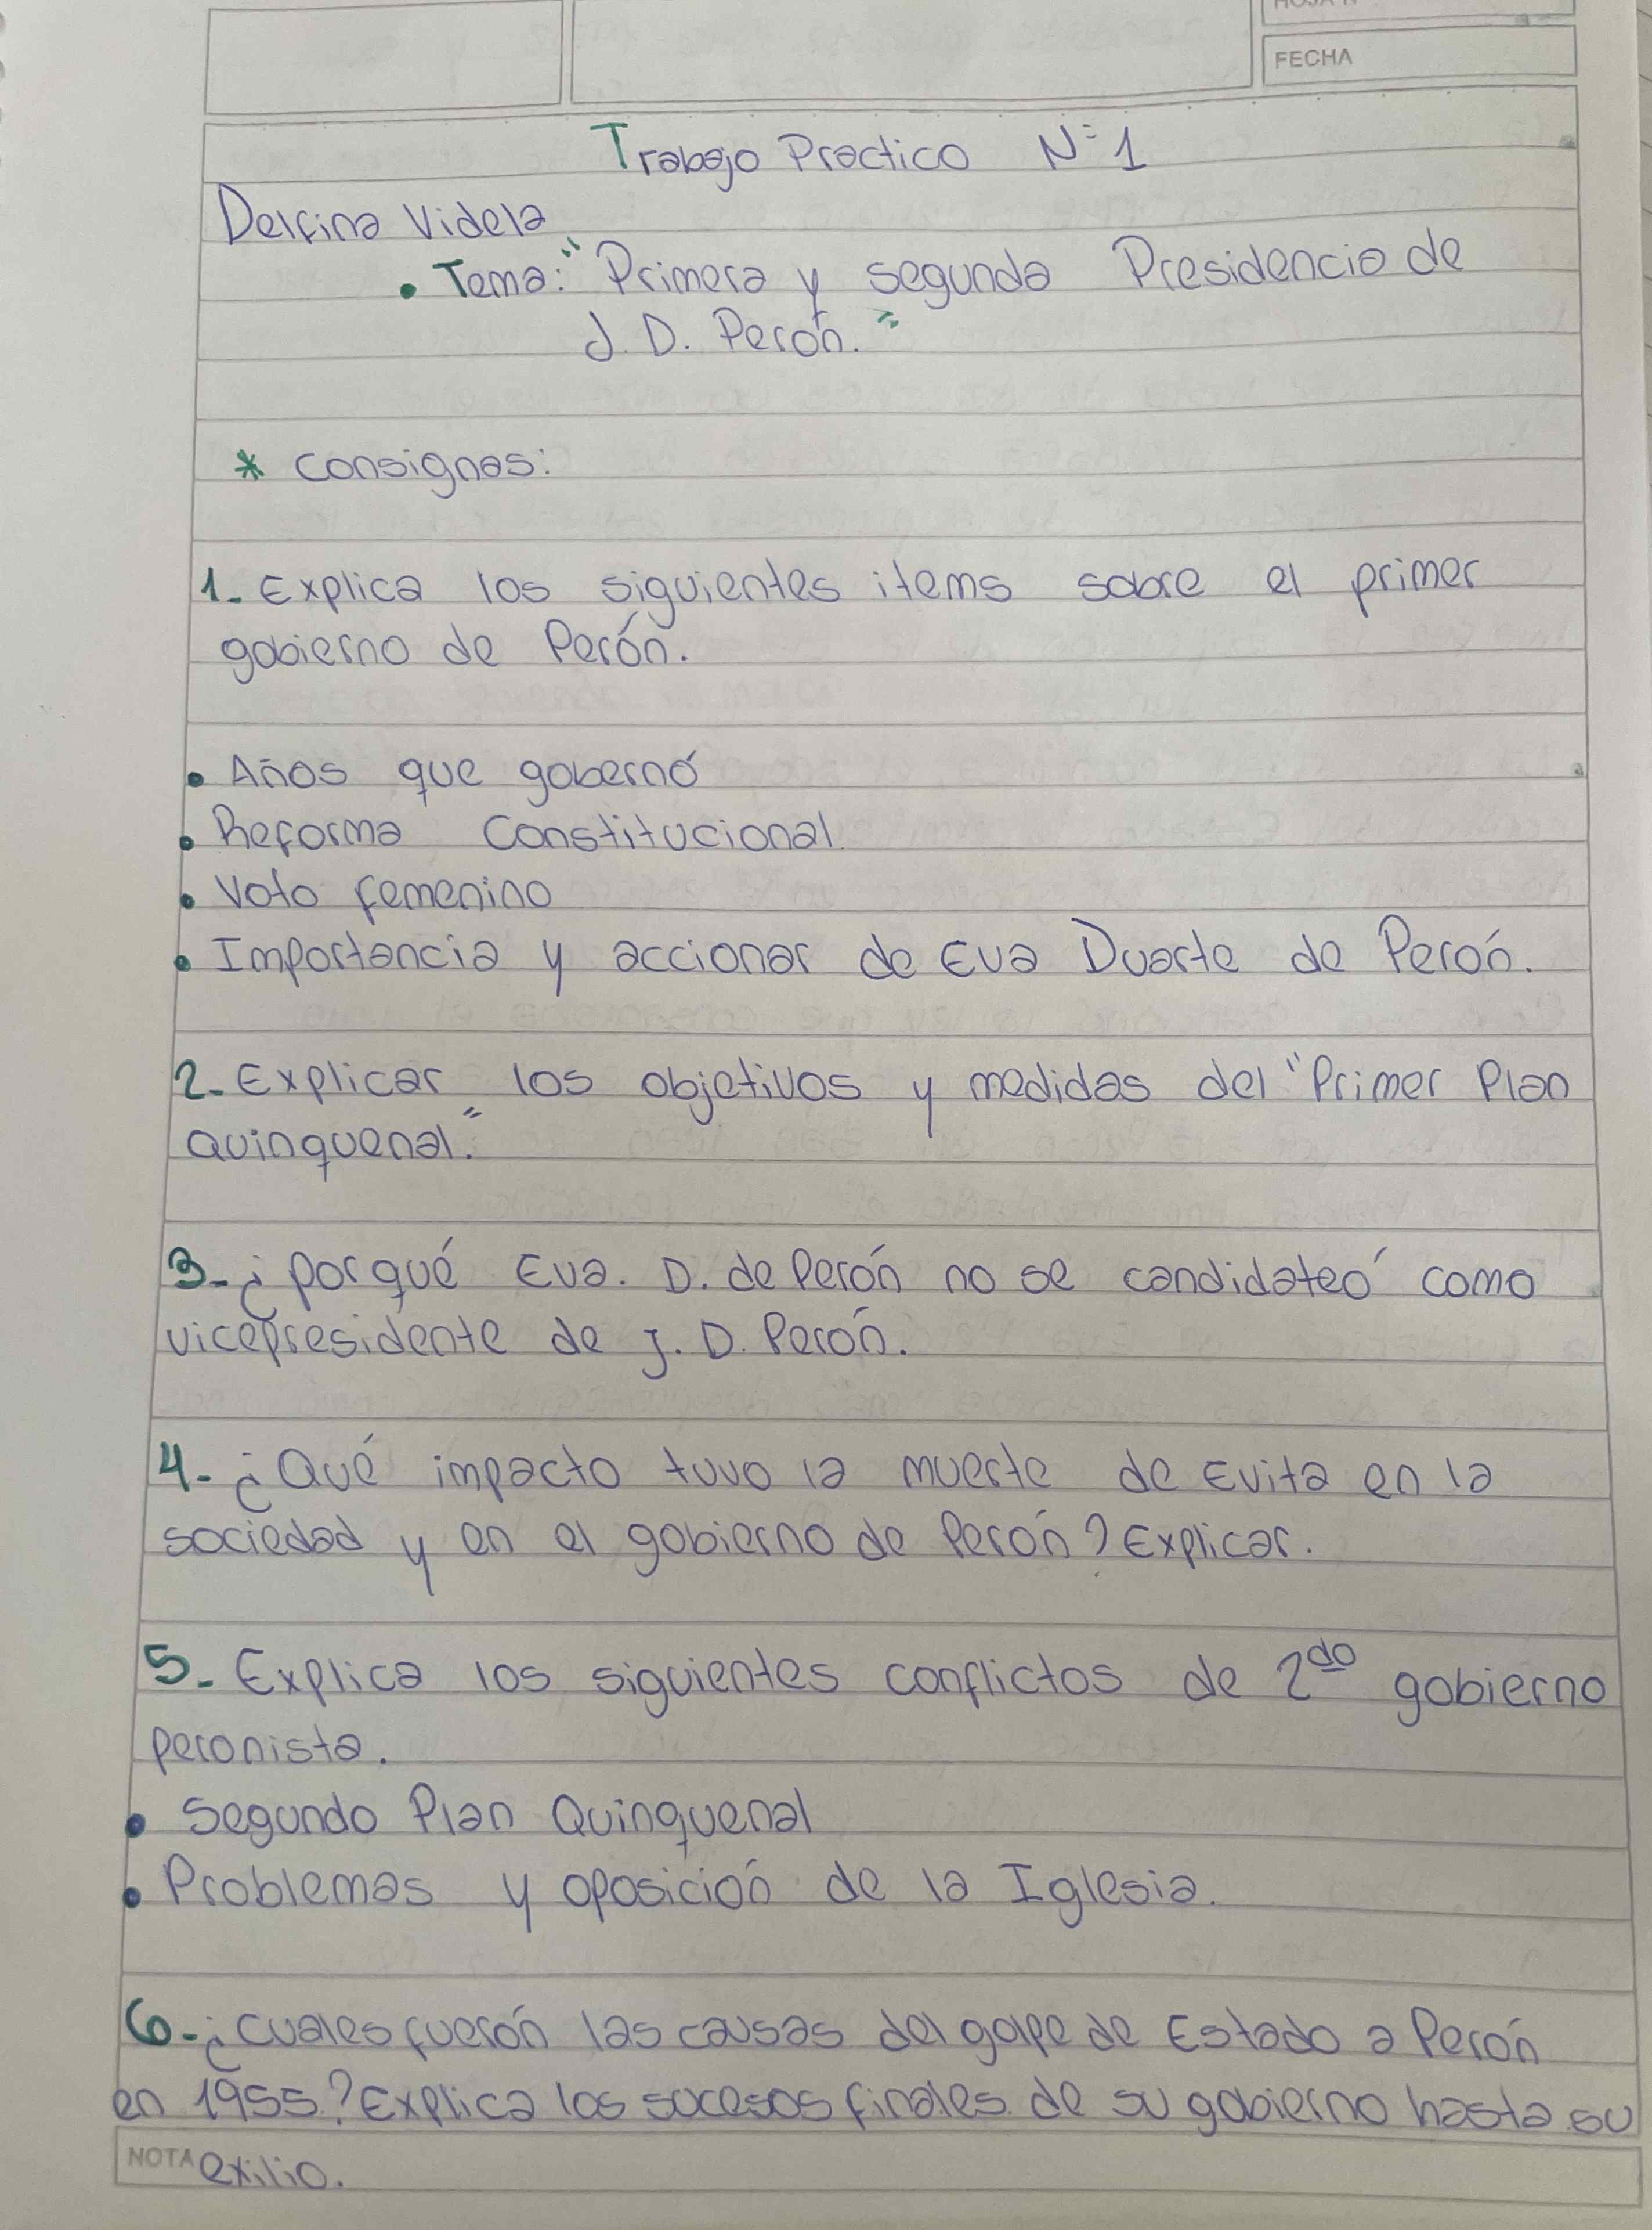 FECHA
Trabajo Practico N°1
Delfina Videla
• Tema: "Primera y segunda Presidencia de
J. D. Perón."
* Consignas:
1. Explica los siguientes items sobre el primer
gobierno de Perón.
• Años que gobernó
• Reforma Constitucional.
• Voto femenino
• Importancia y accionar de Eva Duarte de Perón.
2. Explicar los objetivos y medidas del "Primer Plan
Quinquenal."
3. ¿Por qué Eva. D. de Perón no se candidateó como
vicepresidente de J. D. Perón.
4. ¿Qué impacto tuvo la muerte de Evita en la
sociedad y en el gobierno de Perón? Explicar.
5. Explica los siguientes conflictos de 2do gobierno
peronista.
• Segundo Plan Quinquenal
• Problemas y oposición de la Iglesia.
6. ¿Cuales fuerón las causas del golpe de Estado a Perón
en 1955? Explica los sucesos finales de su gobierno hasta su
NOTA exilio.